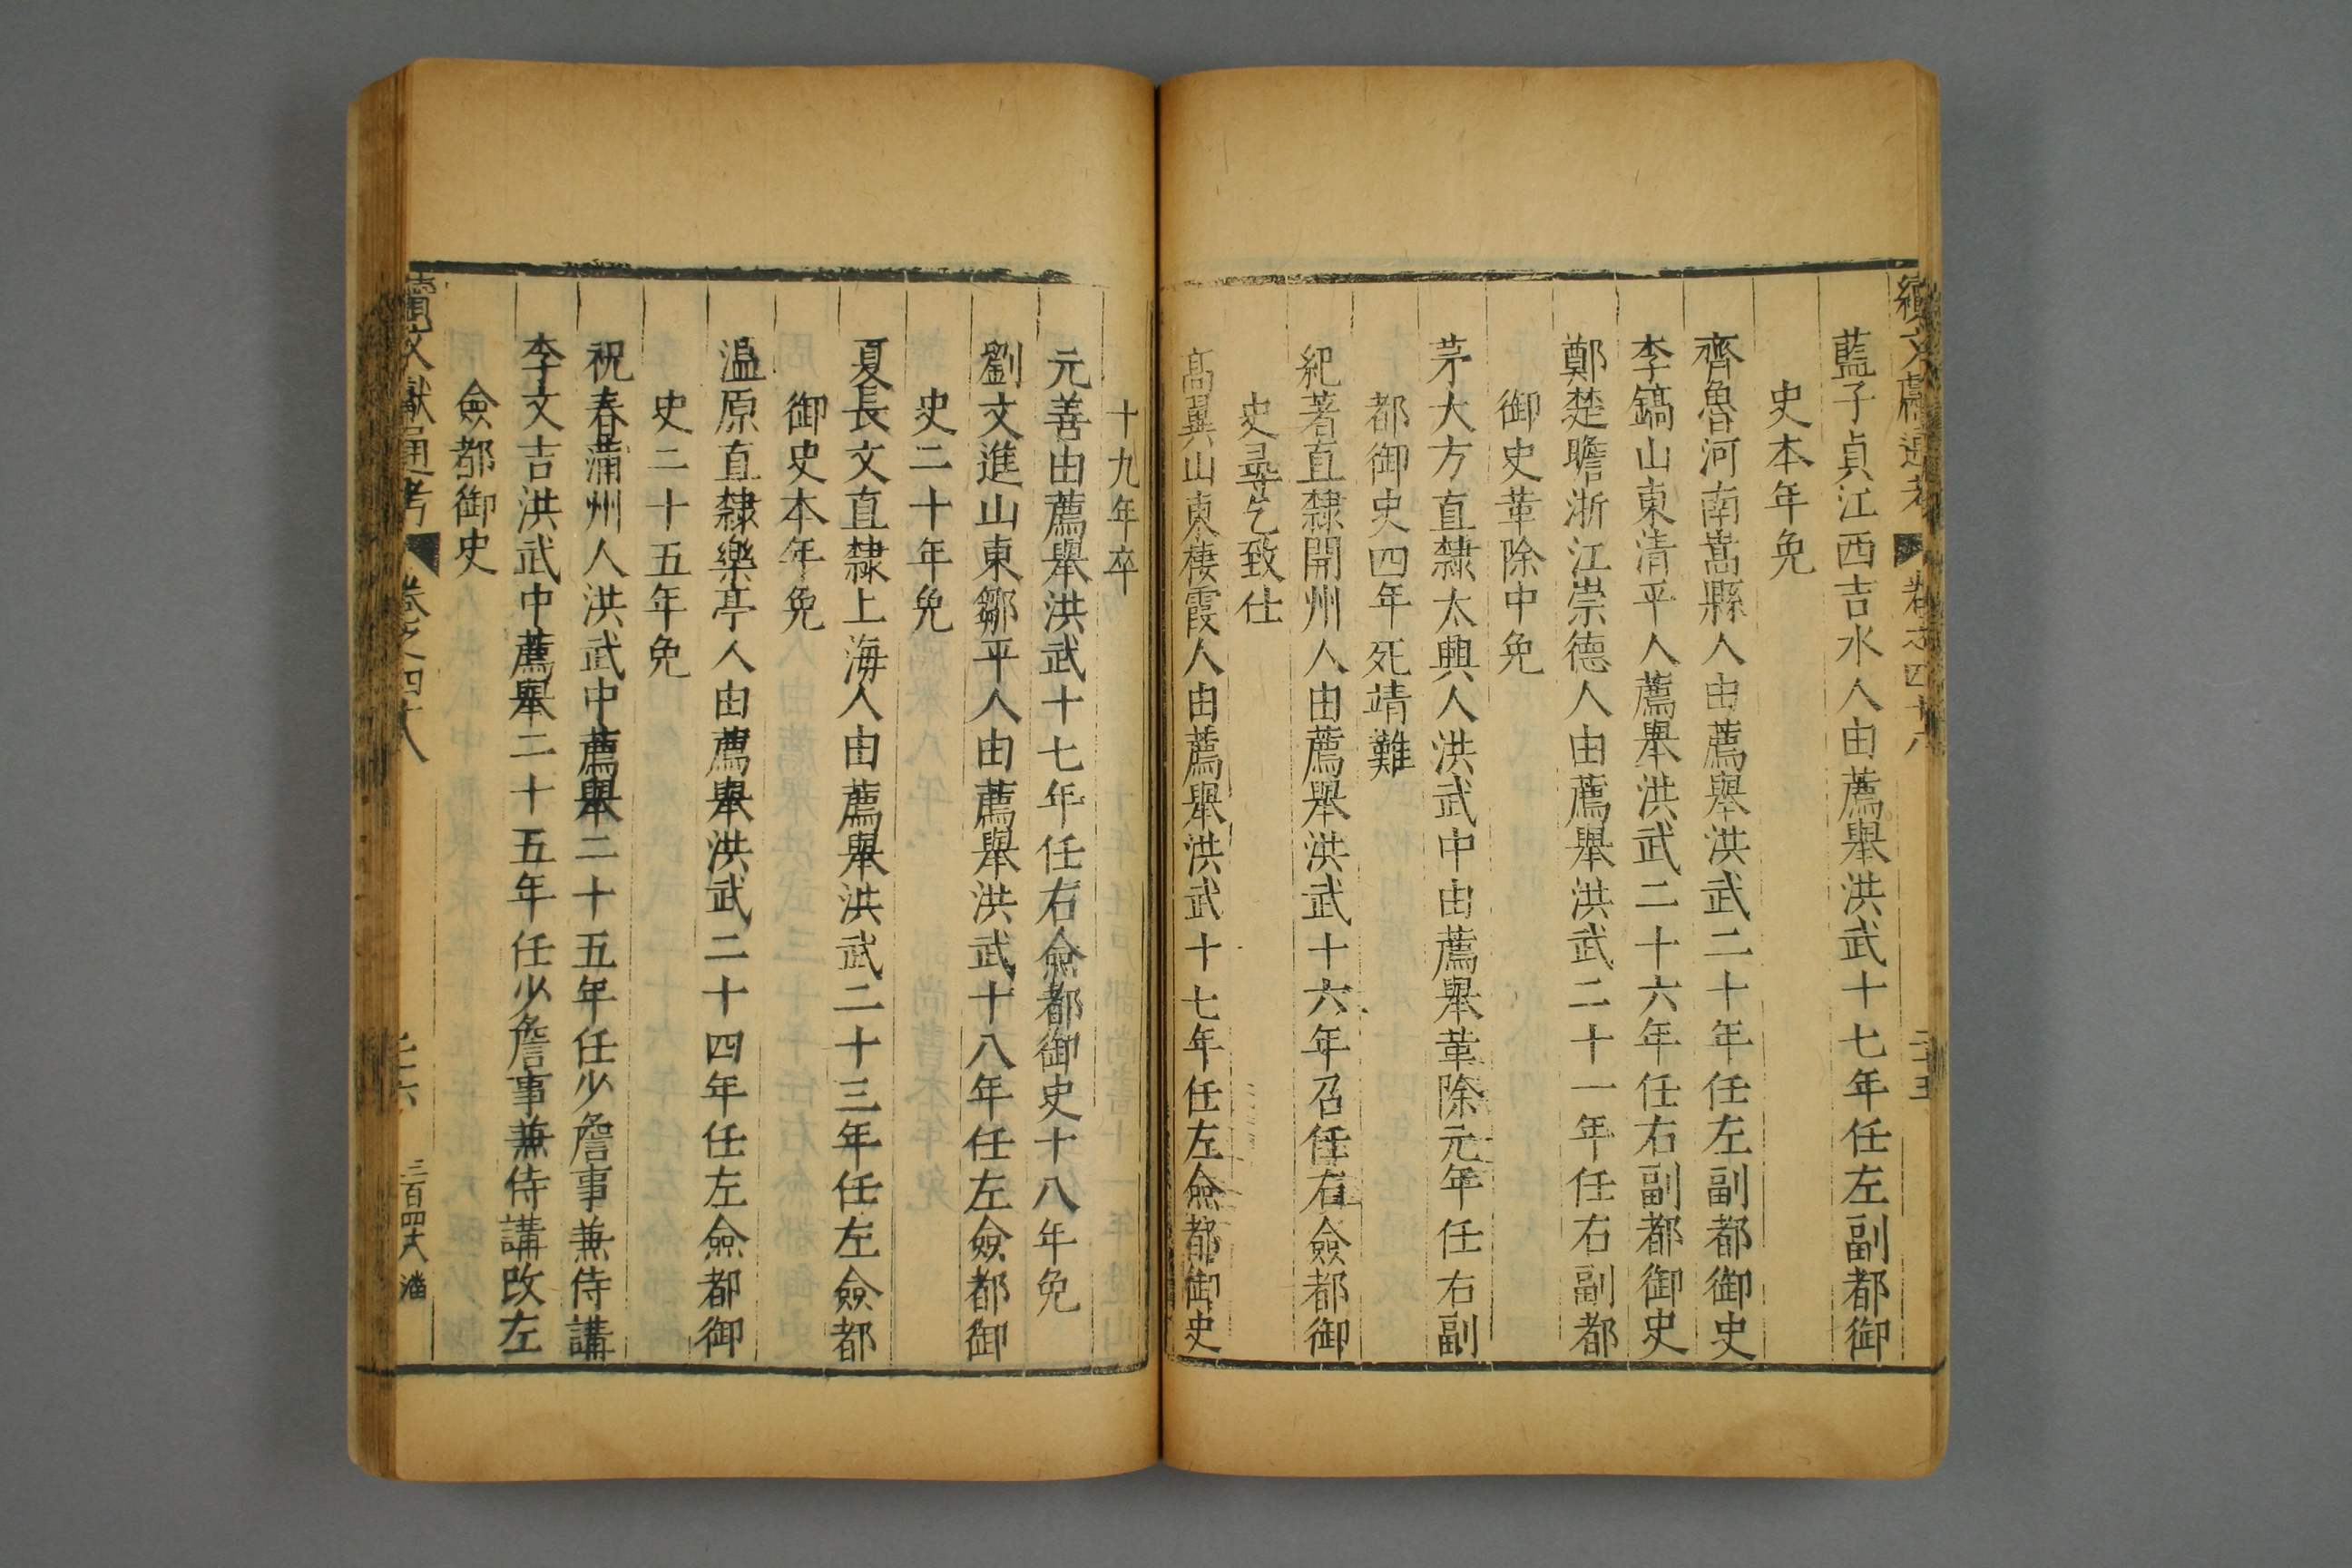 續文獻通考 卷之四十八 二十五
藍子貞江西吉水人由薦舉洪武十七年任左副都御
史本年免
齊魯河南嵩縣人由薦舉洪武二十年任左副都御史
李鎬山東清平人薦舉洪武二十六年任右副都御史
鄭楚瞻浙江崇德人由薦舉洪武二十一年任右副都
御史革除中免
茅大方直隸太興人洪武中由薦舉革除元年任右副
都御史四年死靖難
紀著直隸開州人由薦舉洪武十六年召任右僉都御
史尋乞致仕
高翼山東棲霞人由薦舉洪武十七年任左僉都御史
十九年卒
元善由薦舉洪武十七年任右僉都御史十八年免
劉文進山東鄒平人由薦舉洪武十八年任左僉都御
史二十年免
夏長文直隸上海人由薦舉洪武二十三年任左僉都
御史本年免
溫原直隸樂亭人由薦舉洪武二十四年任左僉都御
史二十五年免
祝春蒲州人洪武中薦舉二十五年任少詹事兼侍講
李文吉洪武中薦舉二十五年任少詹事兼侍講改左
僉都御史
續文獻通考 卷之四十八